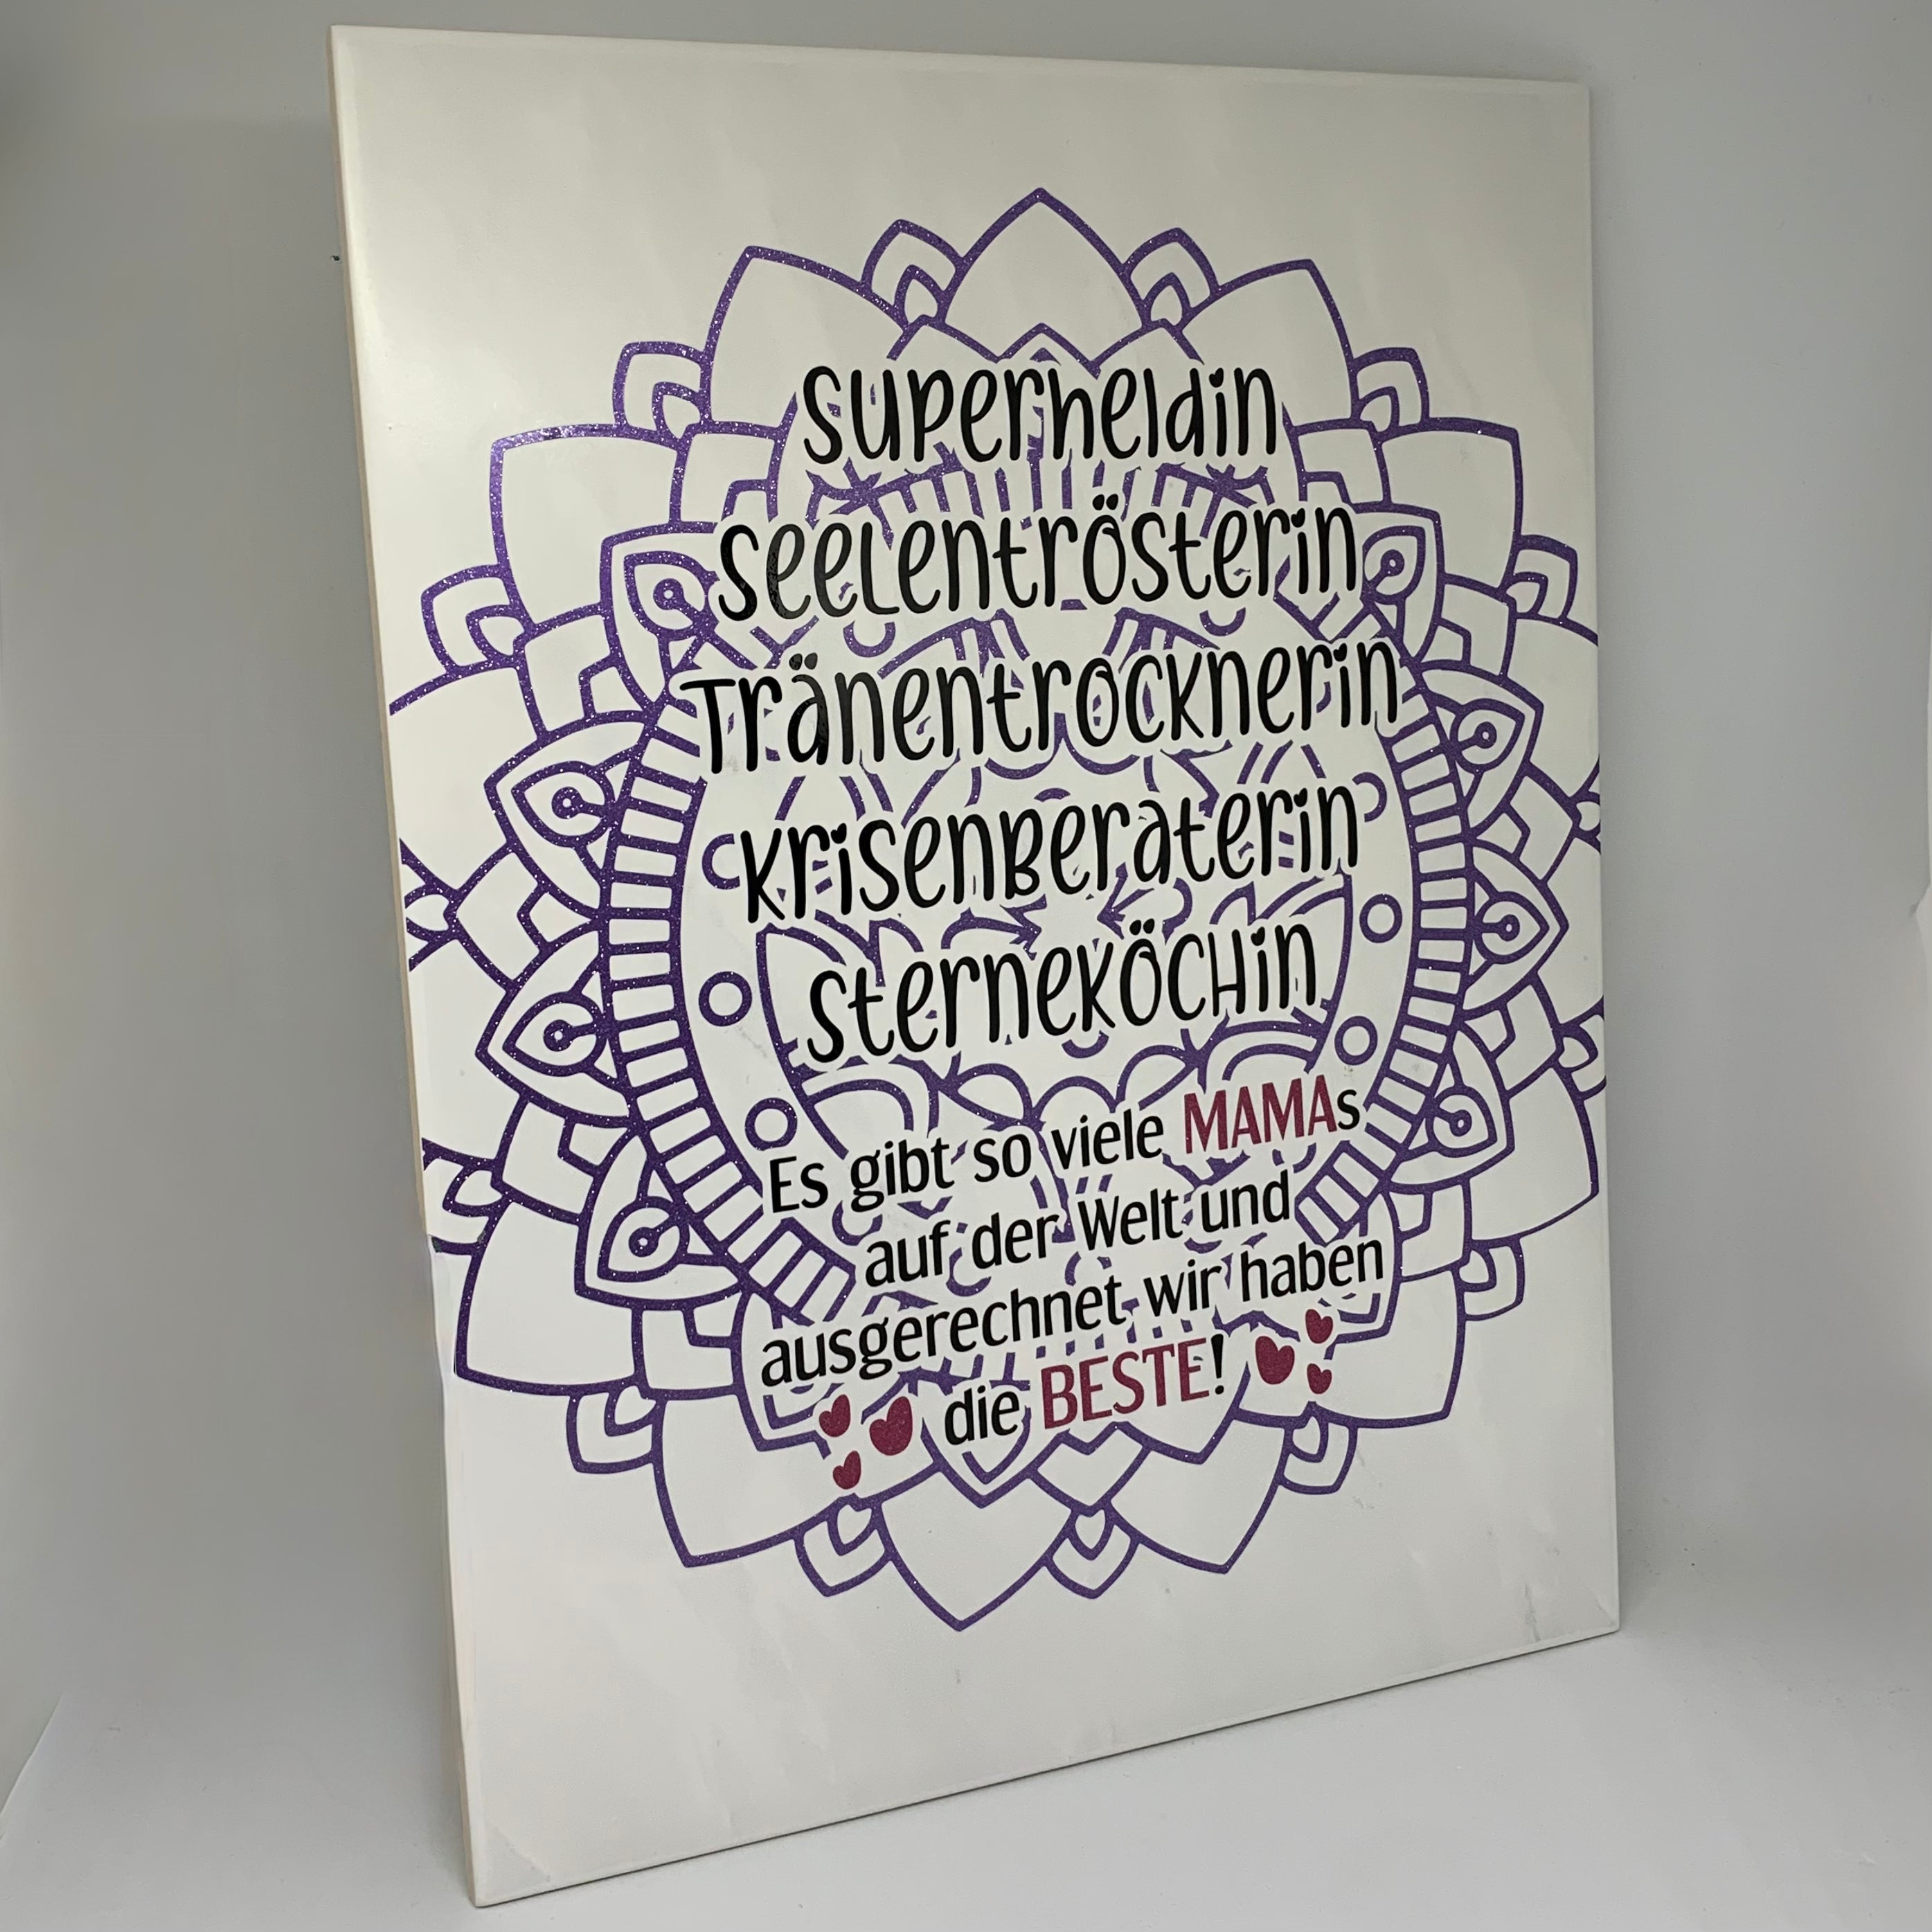 Superheldin
Seelentrösterin
Tränentrocknerin
Krisenberaterin
Sterneköchin
Es gibt so viele MAMAs
auf der Welt und
ausgerechnet wir haben
die BESTE!